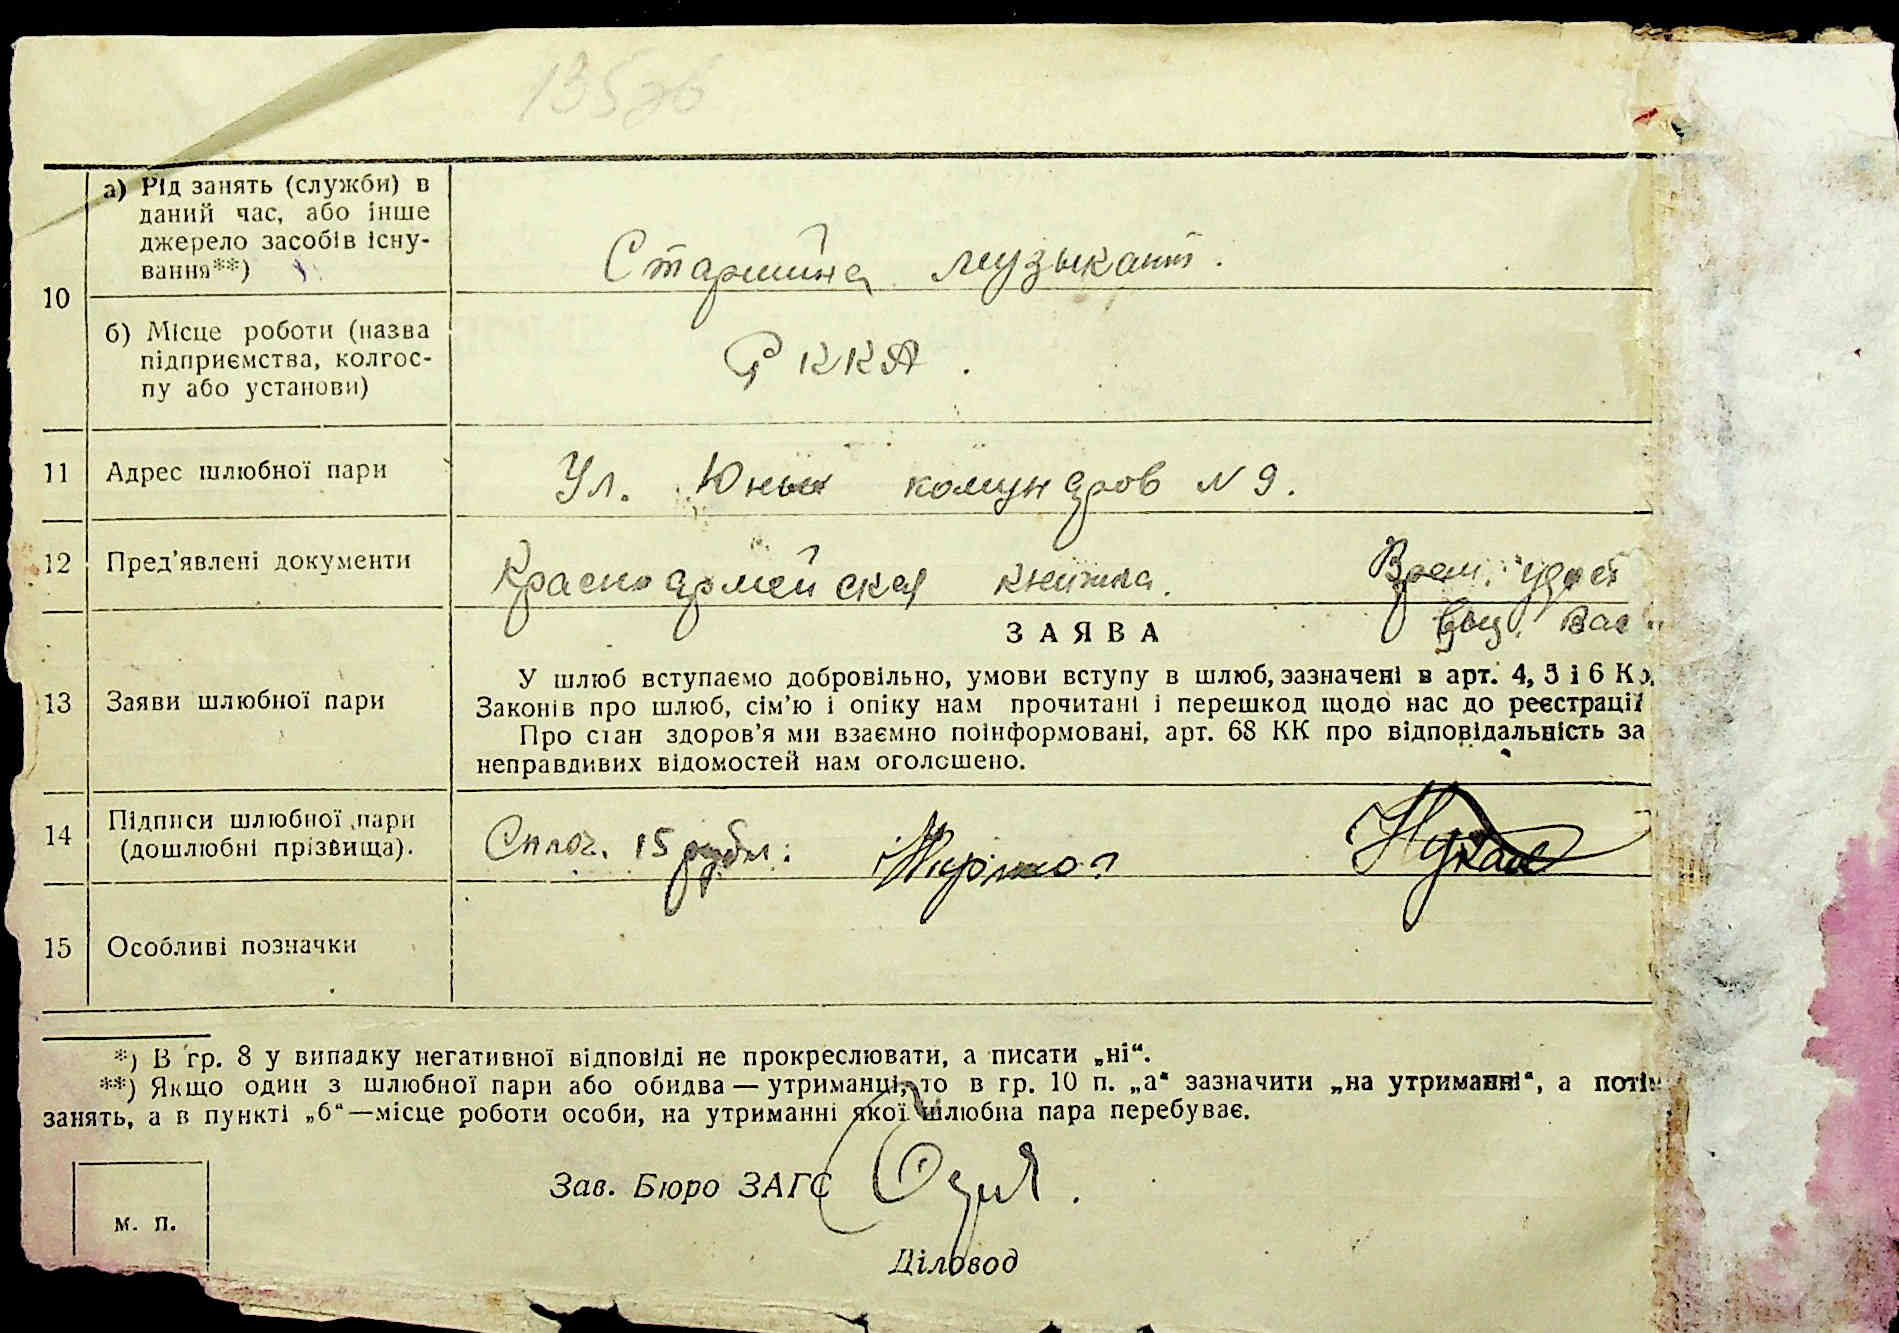 10
а) Рід занять (служби) в
даний час, або інше
джерело засобів існу-
вання**)
Старшина музыкант.
б) Місце роботи (назва
підприємства, колгос-
пу або установи)
РККА.
11 Адрес шлюбної пари
Ул. Юных комунаров N 9.
12 Пред’явлені документи
Красноармейская книжка.
Врем. удост
13 Заяви шлюбної пари
ЗАЯВА
У шлюб вступаємо добровільно, умови вступу в шлюб, зазначені в арт. 4, 5 і 6 Ко
Законів про шлюб, сім’ю і опіку нам прочитані і перешкод щодо нас до реєстрації
Про стан здоров’я ми взаємно поінформовані, арт. 68 КК про відповідальність за
неправдивих відомостей нам оголошено.
14 Підписи шлюбної пари
(дошлюбні прізвища).
Сплоч. 15 рубл.
15 Особливі позначки
*) В гр. 8 у випадку негативної відповіді не прокреслювати, а писати „ні“.
**) Якщо один з шлюбної пари або обидва — утриманці, то в гр. 10 п. „а“ зазначити „на утриманні“, а поті
занять, а в пункті „б“—місце роботи особи, на утриманні якої шлюбна пара перебуває.
Зав. Бюро ЗАГС
м. п.
Діловод